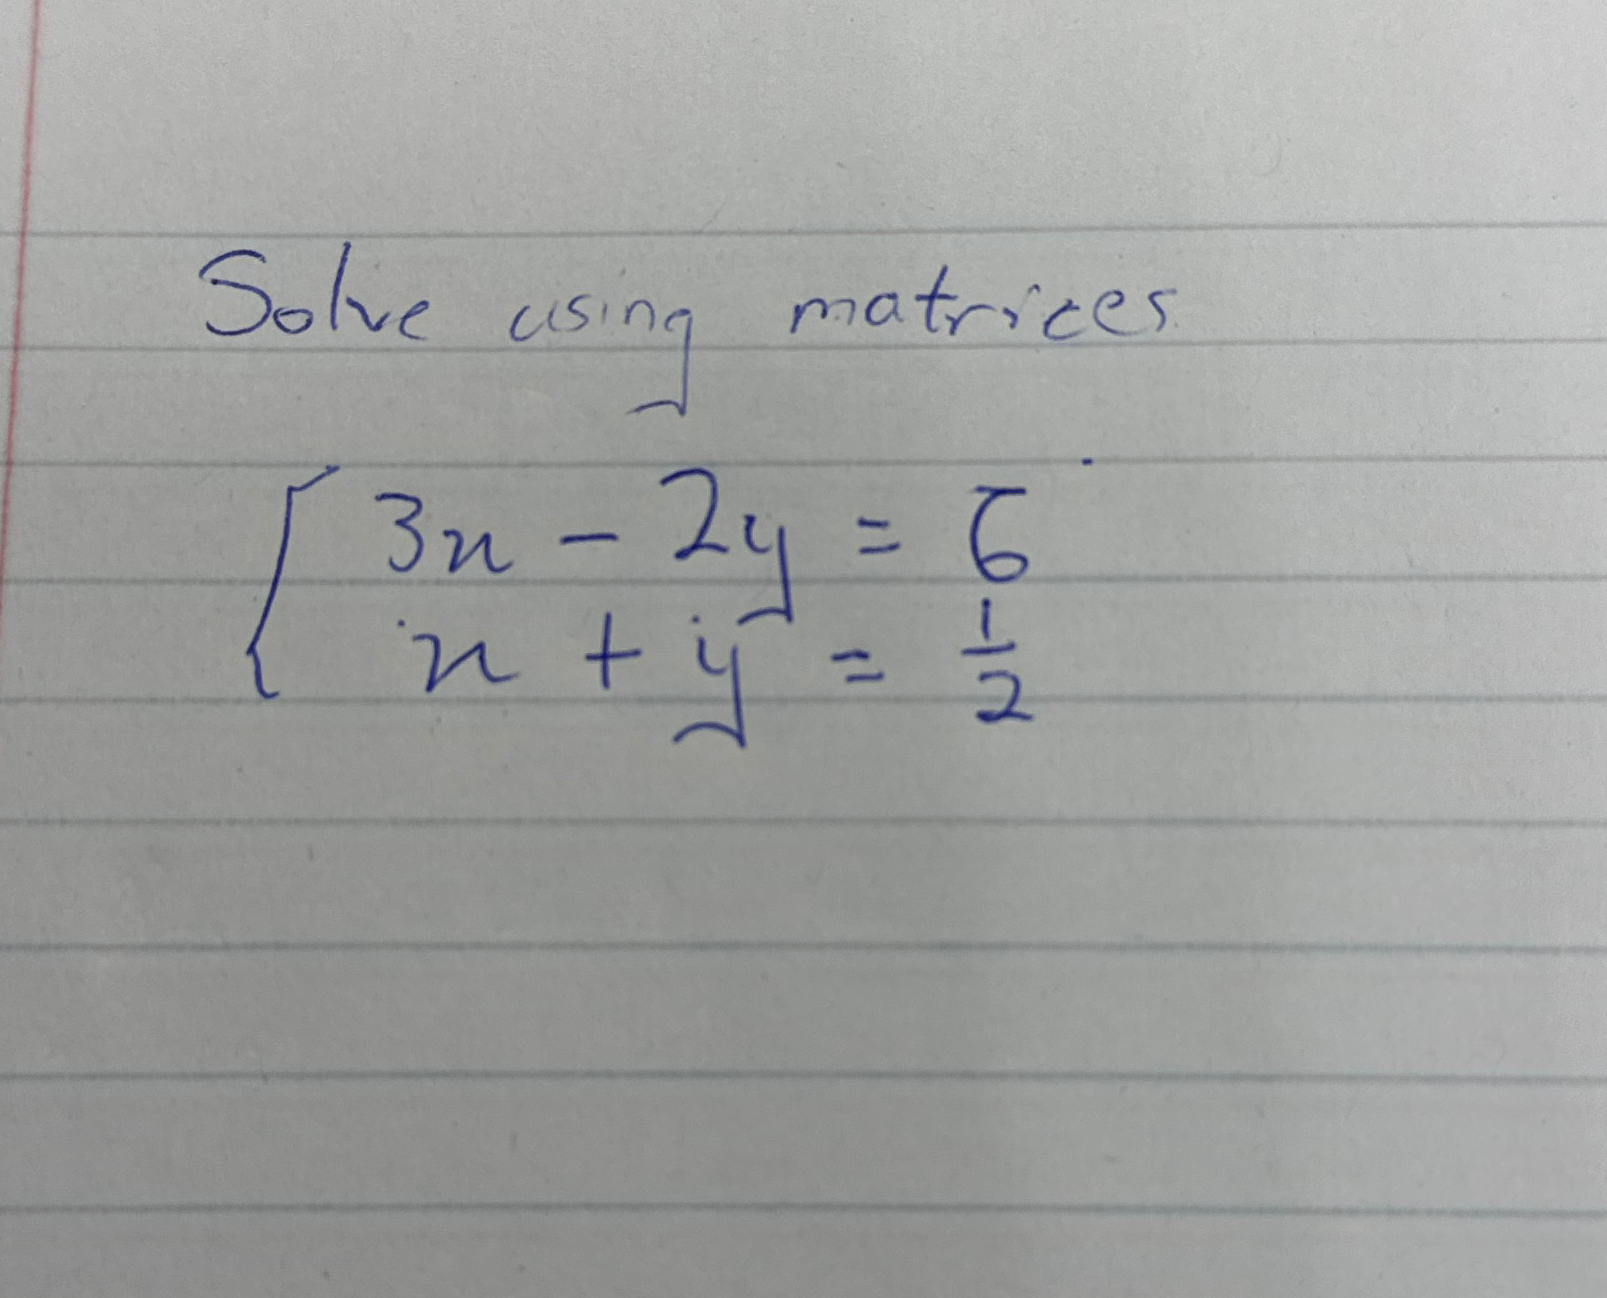 Solve using matrices
3x - 2y = 6
x + y = 1/2